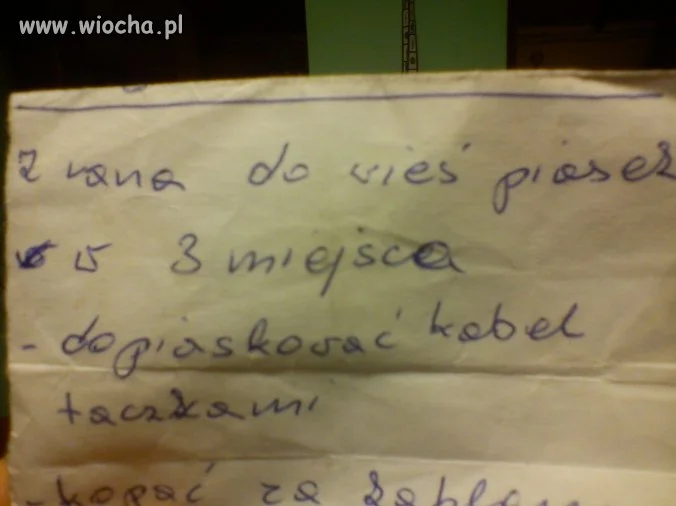 www.wiocha.pl
Z rana do wieś piasek
w 3 miejsca
- dopiaskować kabel
taczkami
- kopać za